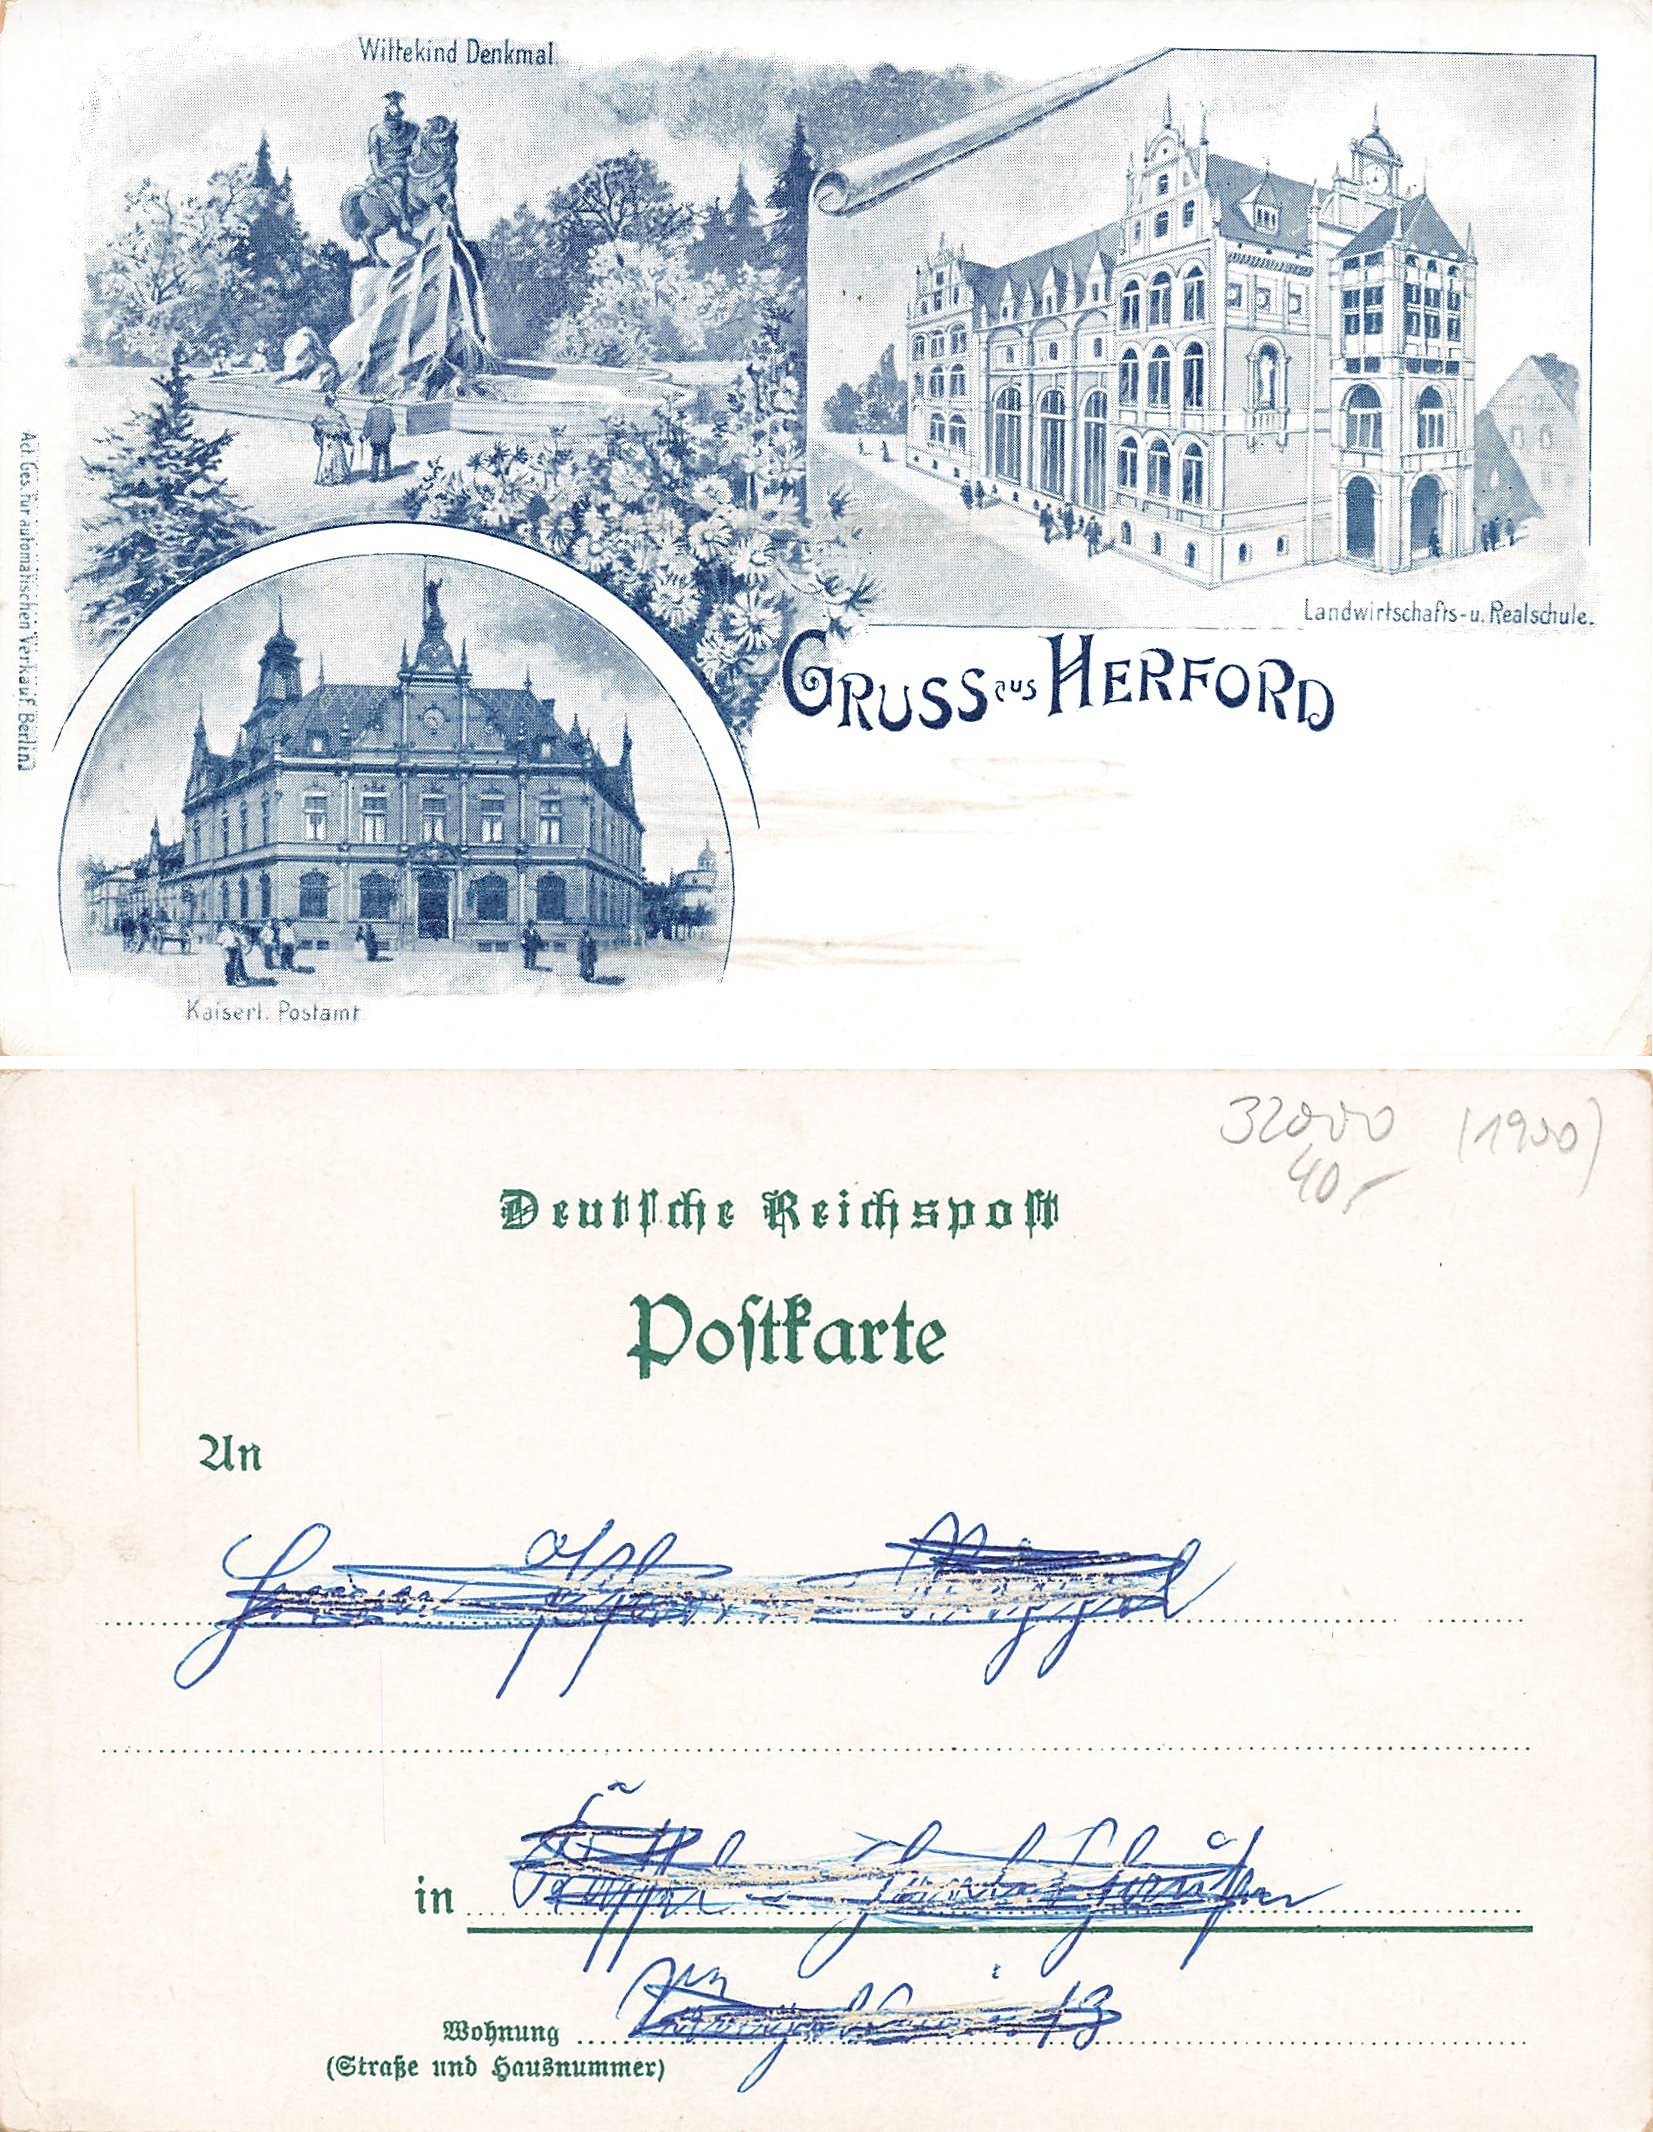 Wittekind Denkmal.
Landwirtschafts- u. Realschule.
GRUSS aus HERFORD
Act. Ges. für automatischen Verkauf. Berlin.
Kaiserl. Postamt.
32000 (1900)
40,-
Deutsche Reichspost
Postkarte
An
in
Wohnung
13
(Straße und Hausnummer)